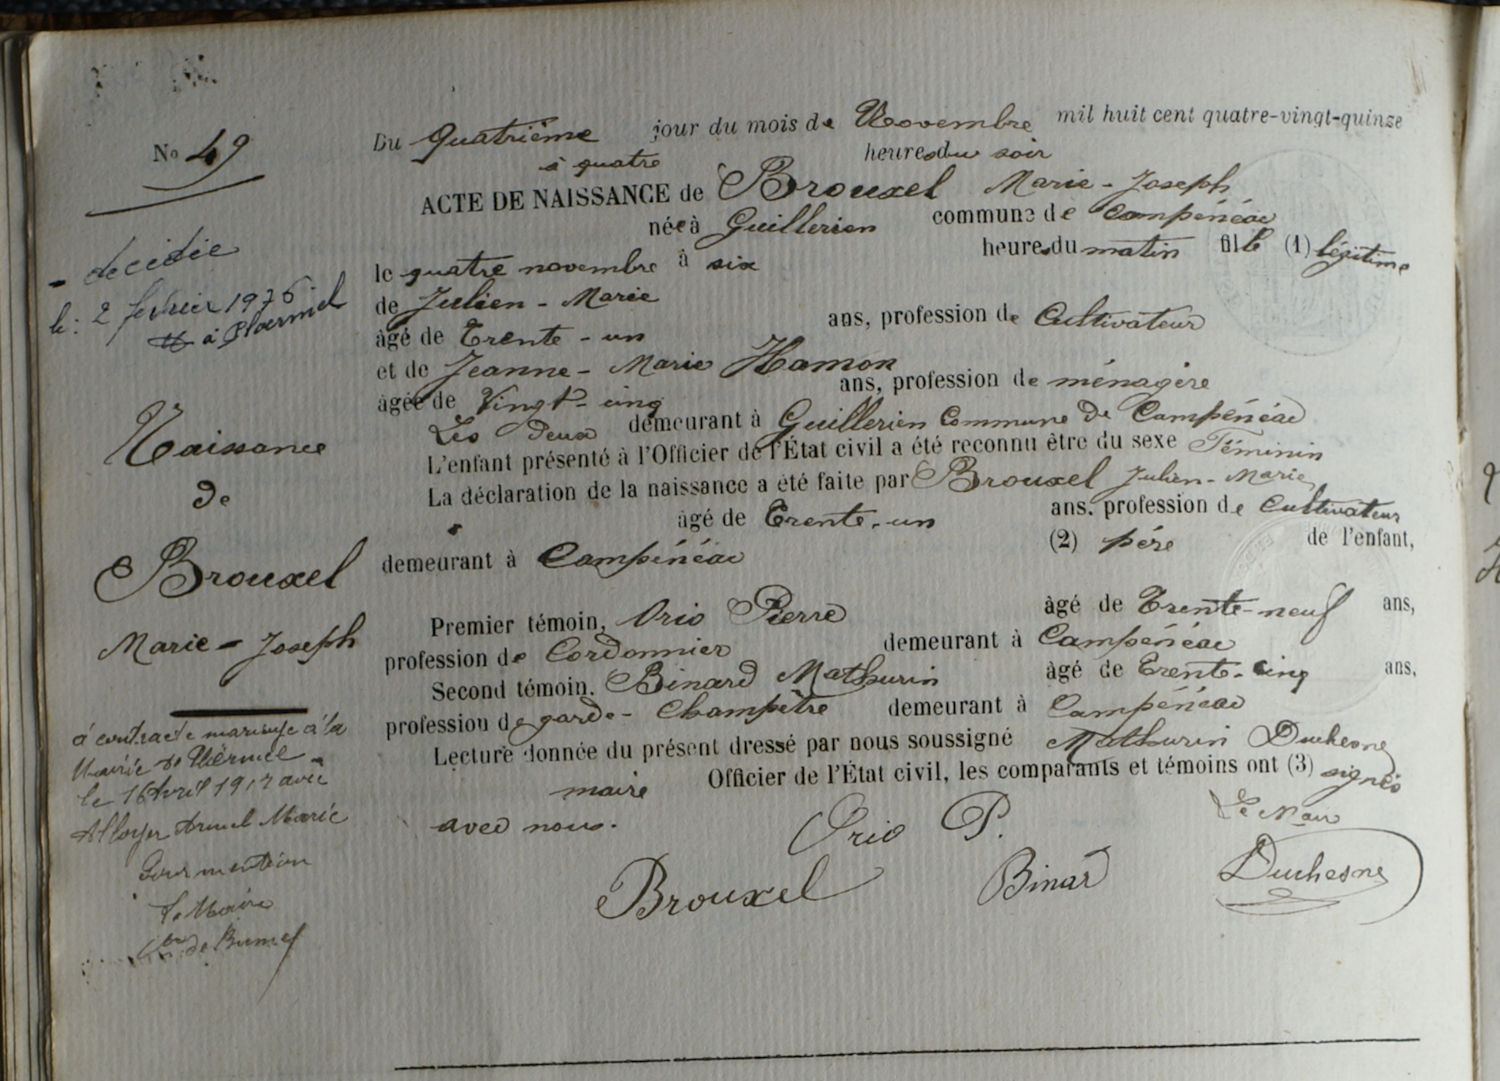 No 49
Du Quatrième jour du mois de Novembre mil huit cent quatre-vingt-quinze
à quatre heures du soir
ACTE DE NAISSANCE de Brouxel Marie-Joseph
née à Guillerien commune de Campénéac
le quatre novembre à six heures du matin fille (1) légitime
de Julien-Marie
âgé de Trente-un ans, profession de Cultivateur
et de Jeanne-Marie Hamon
âgée de Vingt-cinq ans, profession de ménagère
Les Deux demeurant à Guillerien Commune de Campénéac
L'enfant présenté à l'Officier de l'État civil a été reconnu être du sexe Féminin
La déclaration de la naissance a été faite par Brouxel Julien-Marie
âgé de Trente-un ans. profession de Cultivateur
demeurant à Campénéac (2) père de l'enfant,
Premier témoin, Orio Pierre âgé de Trente-neuf ans,
profession de Cordonnier demeurant à Campénéac
Second témoin. Binard Mathurin âgé de Trente-cinq ans,
profession de garde-Champêtre demeurant à Campénéac
Lecture donnée du présent dressé par nous soussigné Mathurin Duchesne
maire Officier de l'État civil, les comparants et témoins ont (3) signés
avec nous.
Orio P.
Le Maire
Brouxel
Binard
Duchesne
- décédée
le: 2 février 1976
à Ploermel
Naissance
de
Brouxel
Marie-Joseph
à contracté mariage à la
Mairie de
le 16 Avril 1917 avec
Alloyer Armel Marie
Pour mention
Le Maire